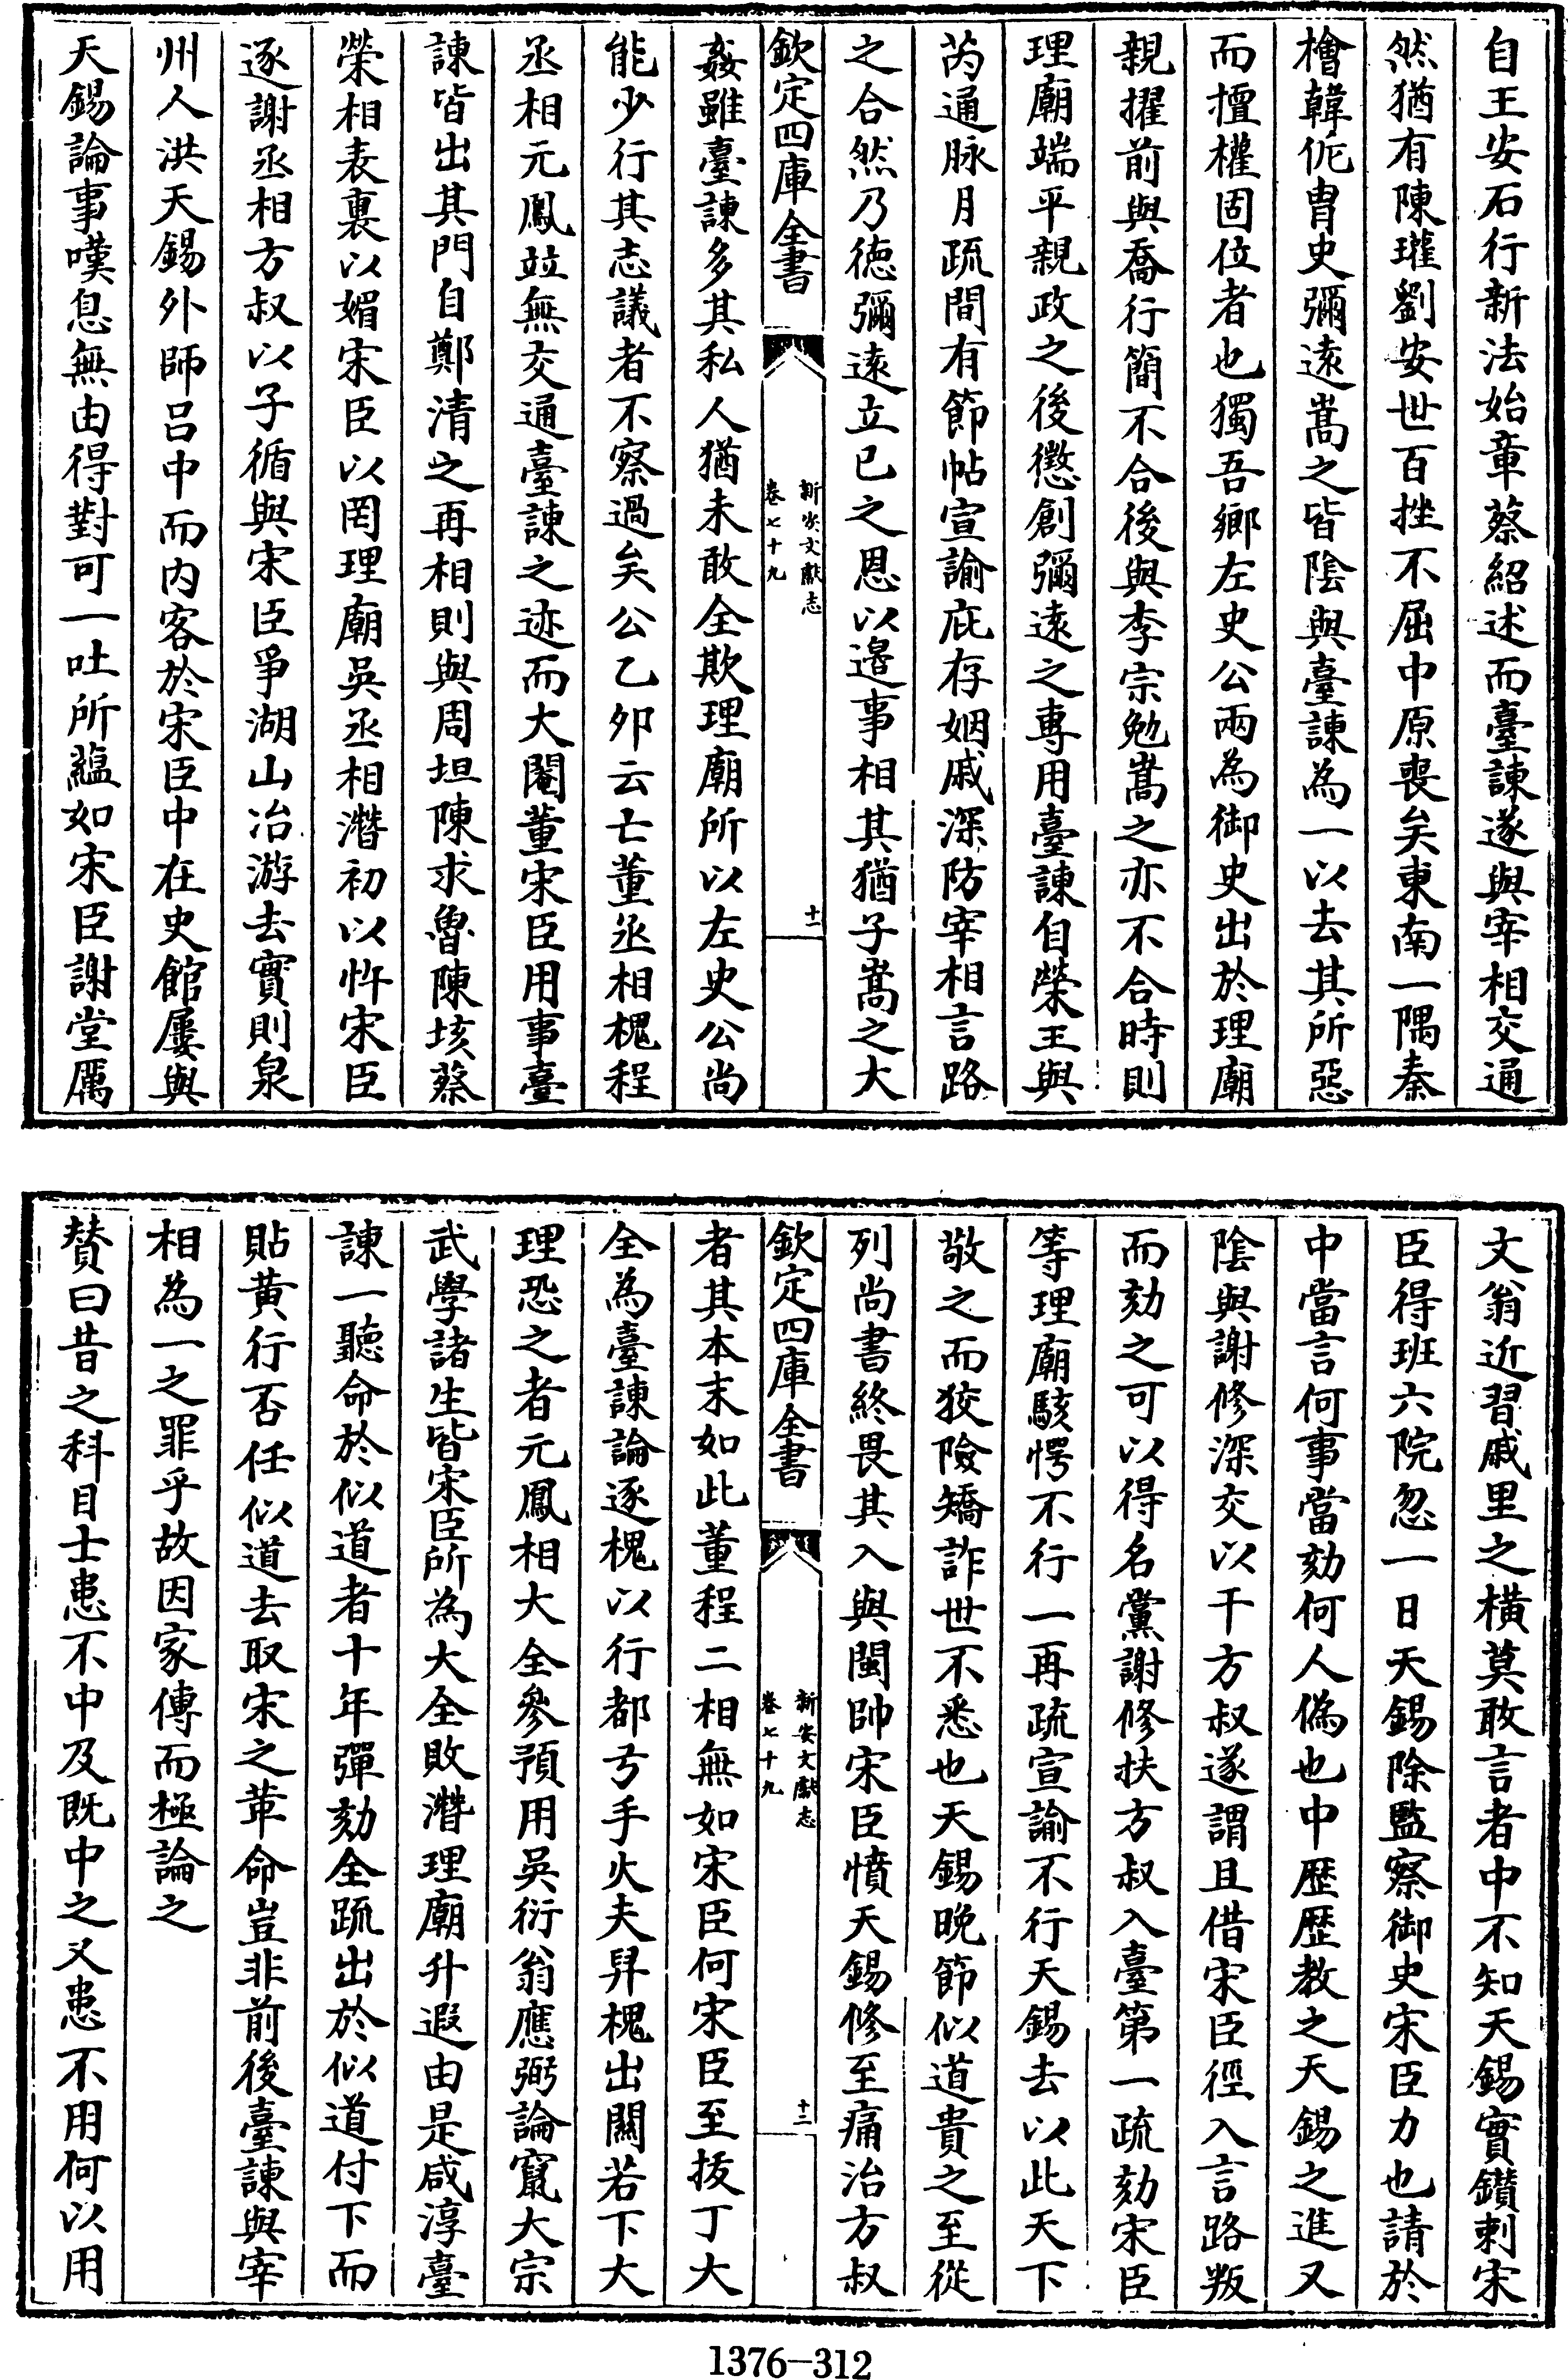 自王安石行新法始章蔡紹述而臺諫遂與宰相交通
然猶有陳瓘劉安世百挫不屈中原喪矣東南一隅秦
檜韓侂胄史彌逺嵩之皆隂與臺諫為一以去其所惡
而擅權固位者也獨吾鄉左史公兩為御史出於理廟
親擢前與喬行簡不合後與李宗勉嵩之亦不合時則
理廟端平親政之後懲創彌逺之専用臺諫自榮王與
芮通脉月疏間有節帖宣諭庇存姻戚深防宰相言路
之合然乃德彌逺立已之恩以邉事相其猶子嵩之大
欽定四庫全書
新安文獻志
卷七十九
十一
姦雖臺諫多其私人猶未敢全欺理廟所以左史公尚
能少行其志議者不察過矣公乙夘云亡董丞相槐程
丞相元鳳並無交通臺諫之迹而大閹董宋臣用事臺
諫皆出其門自鄭清之再相則與周坦陳求魯陳垓蔡
榮相表裏以媚宋臣以罔理廟吳丞相濳初以忤宋臣
逐謝丞相方叔以子循與宋臣爭湖山冶游去實則泉
州人洪天錫外師呂中而内客於宋臣中在史館屢與
天錫論事嘆息無由得對可一吐所藴如宋臣謝堂厲
文翁近習戚里之橫莫敢言者中不知天錫實鑽刺宋
臣得班六院忽一日天錫除監察御史宋臣力也請於
中當言何事當劾何人偽也中歴歴教之天錫之進又
隂與謝修深交以干方叔遂謂且借宋臣徑入言路叛
而劾之可以得名黨謝修扶方叔入臺第一疏劾宋臣
等理廟駭愕不行一再疏宣諭不行天錫去以此天下
敬之而狡險矯詐世不悉也天錫晚節似道貴之至從
列尚書終畏其入與閩帥宋臣憤天錫修至痛治方叔
欽定四庫全書
新安文獻志
卷七十九
十二
者其本末如此董程二相無如宋臣何宋臣至拔丁大
全為臺諫論逐槐以行都弓手火夫舁槐出關若下大
理恐之者元鳳相大全參預用吳衍翁應弼論竄大宗
武學諸生皆宋臣所為大全敗濳理廟升遐由是咸淳臺
諫一聽命於似道者十年彈劾全疏出於似道付下而
貼黄行否任似道去取宋之革命豈非前後臺諫與宰
相為一之罪乎故因家傳而極論之
賛曰昔之科目士患不中及既中之又患不用何以用
1376-312